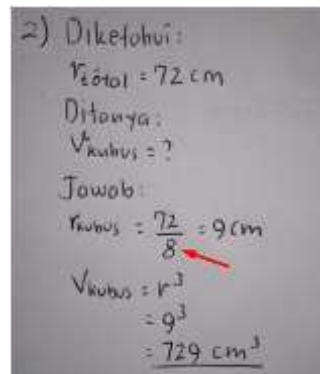 2) Diketahui:
r total = 72 cm
Ditanya:
V kubus = ?
Jawab:
r kubus = 72/8 = 9 cm
V kubus = r³
= 9³
= 729 cm³